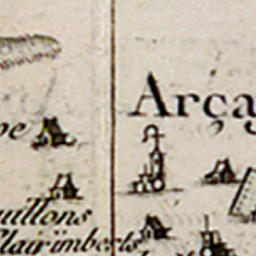 Arça
pe
uillons
Clairimberts